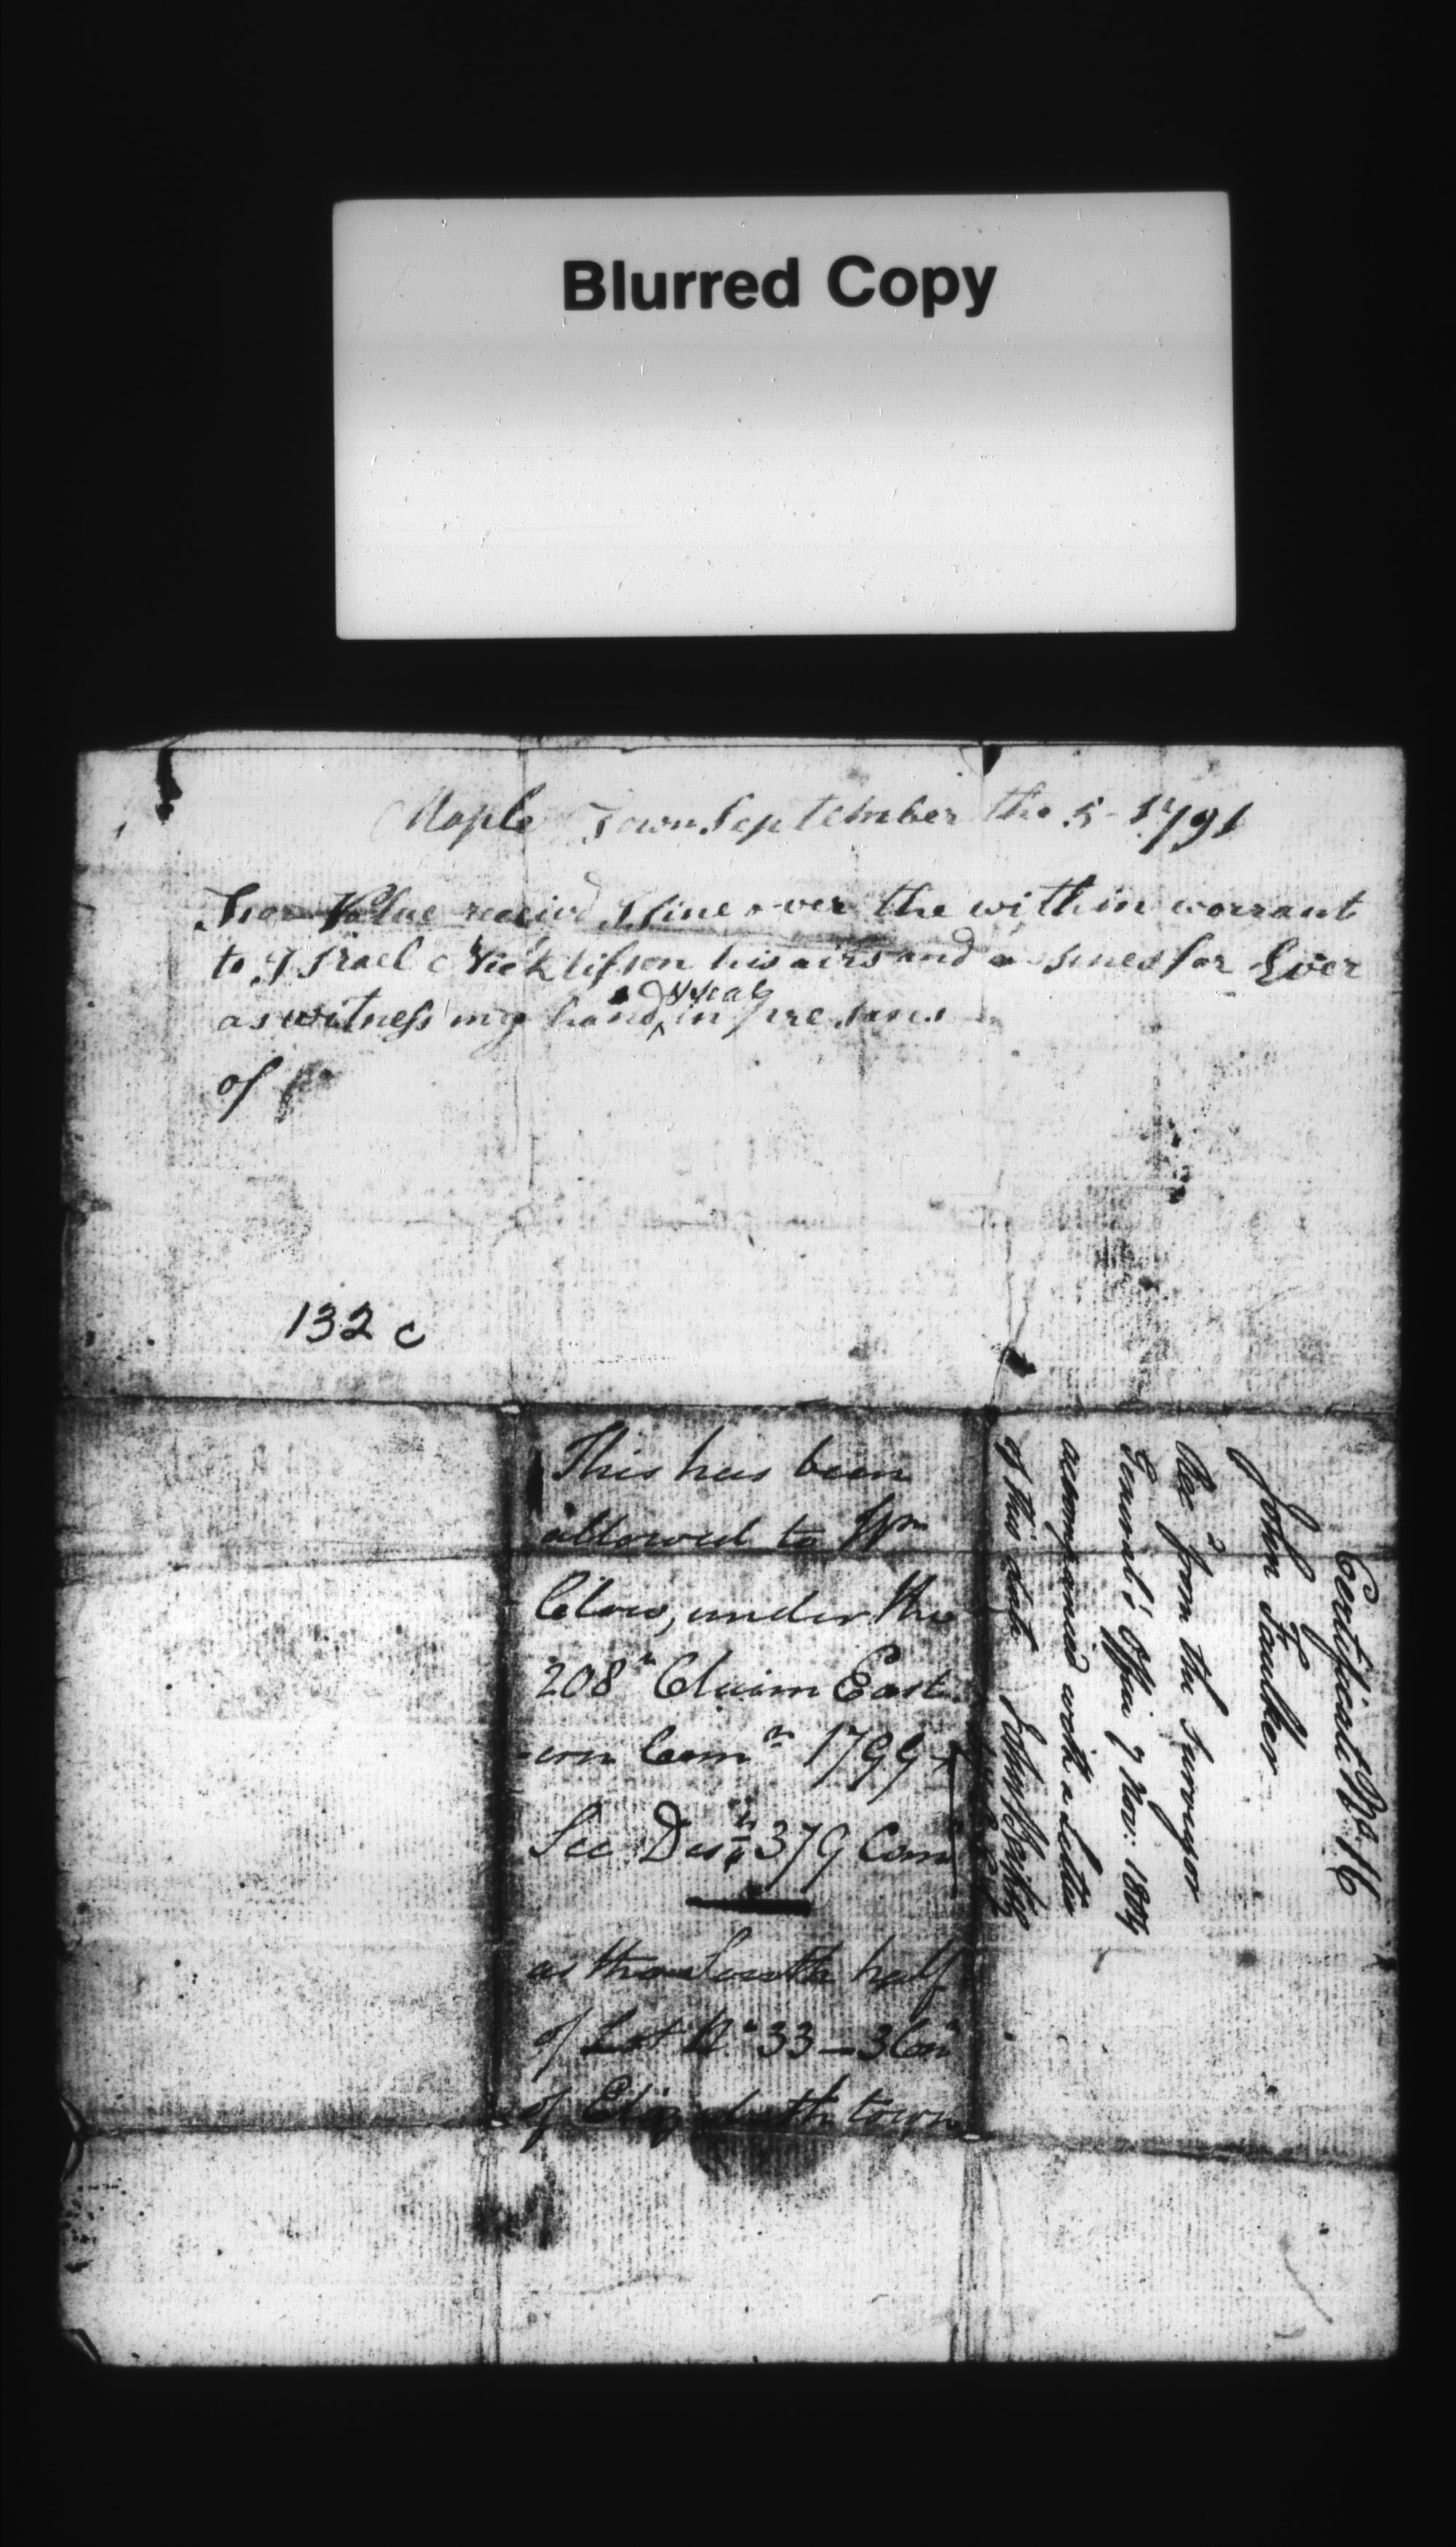 Blurred Copy
Maple Town September the 5 - 1791
For Value receivd I sine over the within warrant
to Israel his airs and a sines for Ever
and Seal
as witness my hand in presans
of
132 c
This has been
allowed to Wm
Clow, under the
208th Claim East
-ern Comn 1799
See Desn 379 Com
as the South half
of Lot No 33 - 3 Con
of Elizabeth town
Certificate 16
John Faulker
Recd from the Surveyor
General's Office 7 Nov: 1804
accompanied with a Letter
of this date